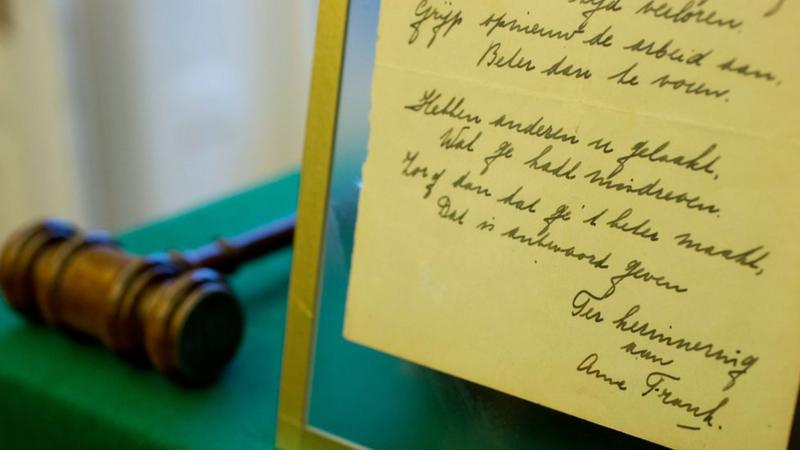 tijd verloren.
Grijp opnieuw de arbeid aan,
Beter dan te voren.
Hebben anderen u gelaakt,
Wat ge hadt misdreven.
Zorg dan dat ge 't beter maakt,
Dat is antwoord geven
Ter herinnering
aan
Anne Frank.